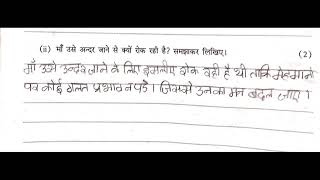 (ii) माँ उसे अन्दर जाने से क्यों रोक रही है? समझाकर लिखिए। (2)
माँ उसे अन्दर जाने के लिए इसलीए रोक रही है थी ताकि मेहमानो
पर कोई गलत प्रभाव न पड़े। जिससे उनका मन बदल जाए।